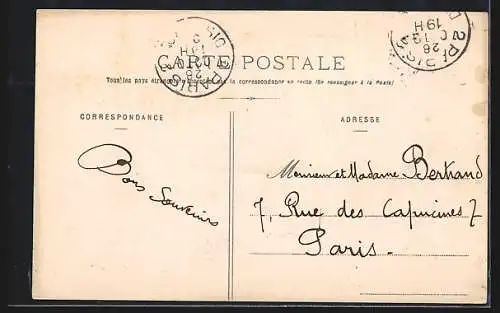 CARTE POSTALE
Tous les pays étrangers la correspondance au recto (Se renseigner à la Poste)
CORRESPONDANCE
ADRESSE
Bons Souvenirs
Monsieur et Madame Bertrand
7, Rue des Capucines 7
Paris.
PARIS
26
19H
PARIS
26
19H